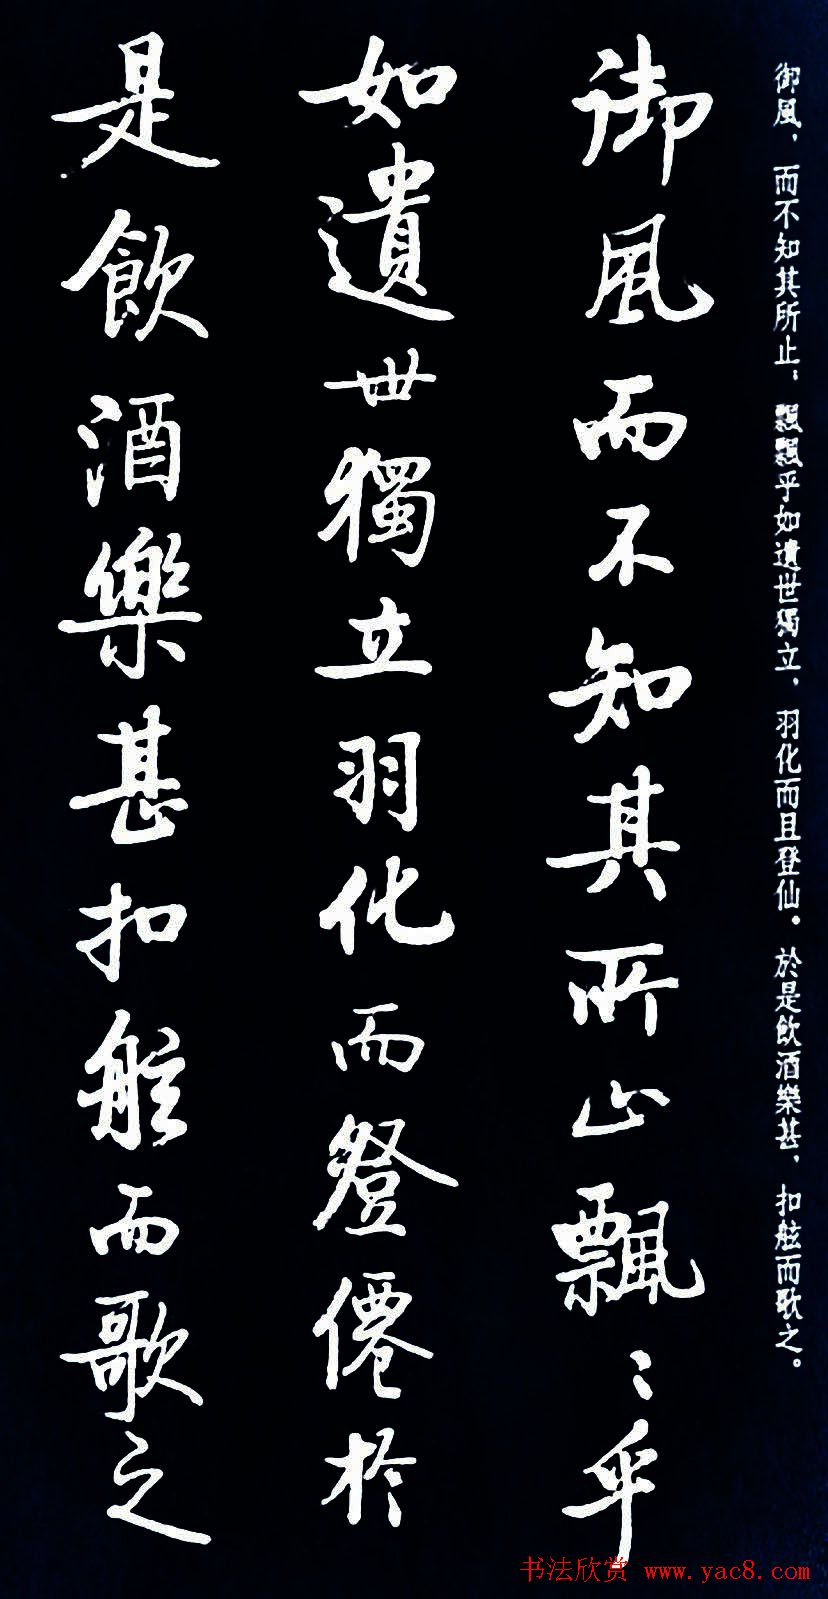 御風，而不知其所止；飄飄乎如遺世獨立，羽化而且登仙。於是飲酒樂甚，扣舷而歌之。
御風而不知其所止飄〻乎
如遺世獨立羽化而登僊於
是飲酒樂甚扣舷而歌之
书法欣赏 www.yac8.com